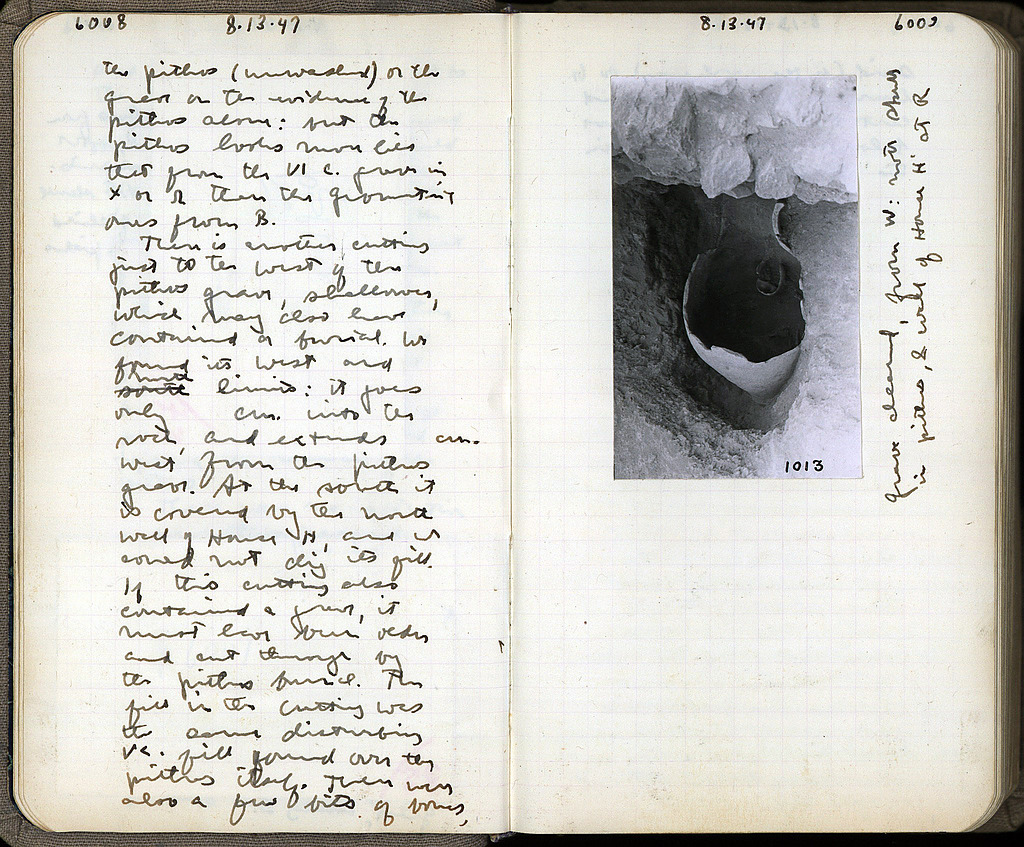 6008 8.13.47
the pithos (unwashed) or the
grave on the evidence of the
pithos alone: but the
pithos looks more like
that from the VI c. grave in
X or of than the geometric
ones from B.
There is another cutting
just to the west of the
pithos grave, shallower,
which may also have
contained a burial. We
found its west and
north
south limits: it goes
only cm. into the
rock, and extends cm.
west from the pithos
grave. At the south it
is covered by the north
wall of House H, and we
could not dig its fill.
If this cutting also
contained a grave, it
must have been older
and cut through by
the pithos burial. The
fill in the cutting was
the same disturbing
Vc. fill found over the
pithos itself. There were
also a few bits of bones,
8.13.47 6009
1013
grave cleaned, from W: note skull
in pithos, & wall of House H at R